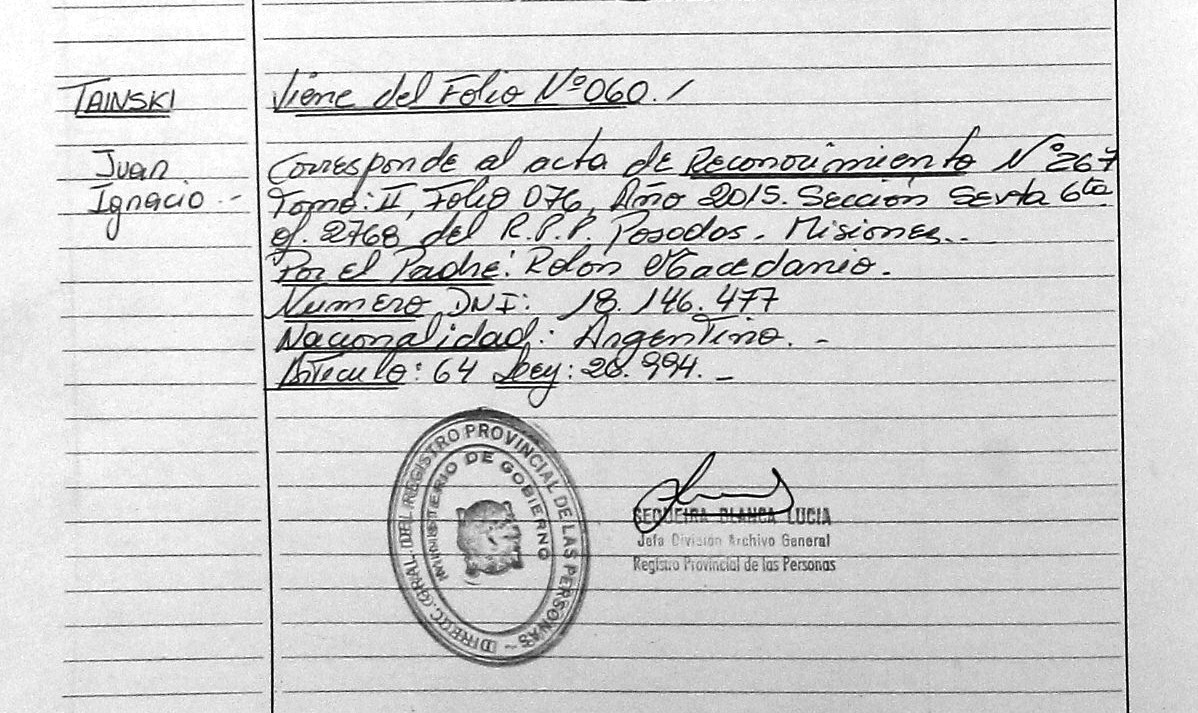 TAINSKI
Viene del Folio Nº 060. /
Juan
Ignacio.-
Corresponde al acta de Reconocimiento Nº 267
Tomo: II, Folio 076, Año 2015. Sección Sexta 6ta
of. 2768 del R.P.P. Posadas. Misiones..
Por el Padre: Rolón Macedanio.
Numero DNI: 18.146.477
Nacionalidad: Argentino. -
Artículo: 64 Ley: 26.994. _
DIRECC. GRAL. DEL REGISTRO PROVINCIAL DE LAS PERSONAS -
MINISTERIO DE GOBIERNO
SEQUEIRA BLANCA LUCIA
Jefa División Archivo General
Registro Provincial de las Personas